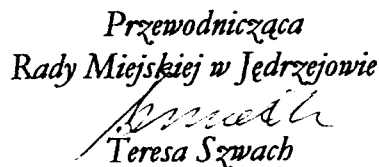 Przewodnicząca
Rady Miejskiej w Jędrzejowie
Teresa Szwach